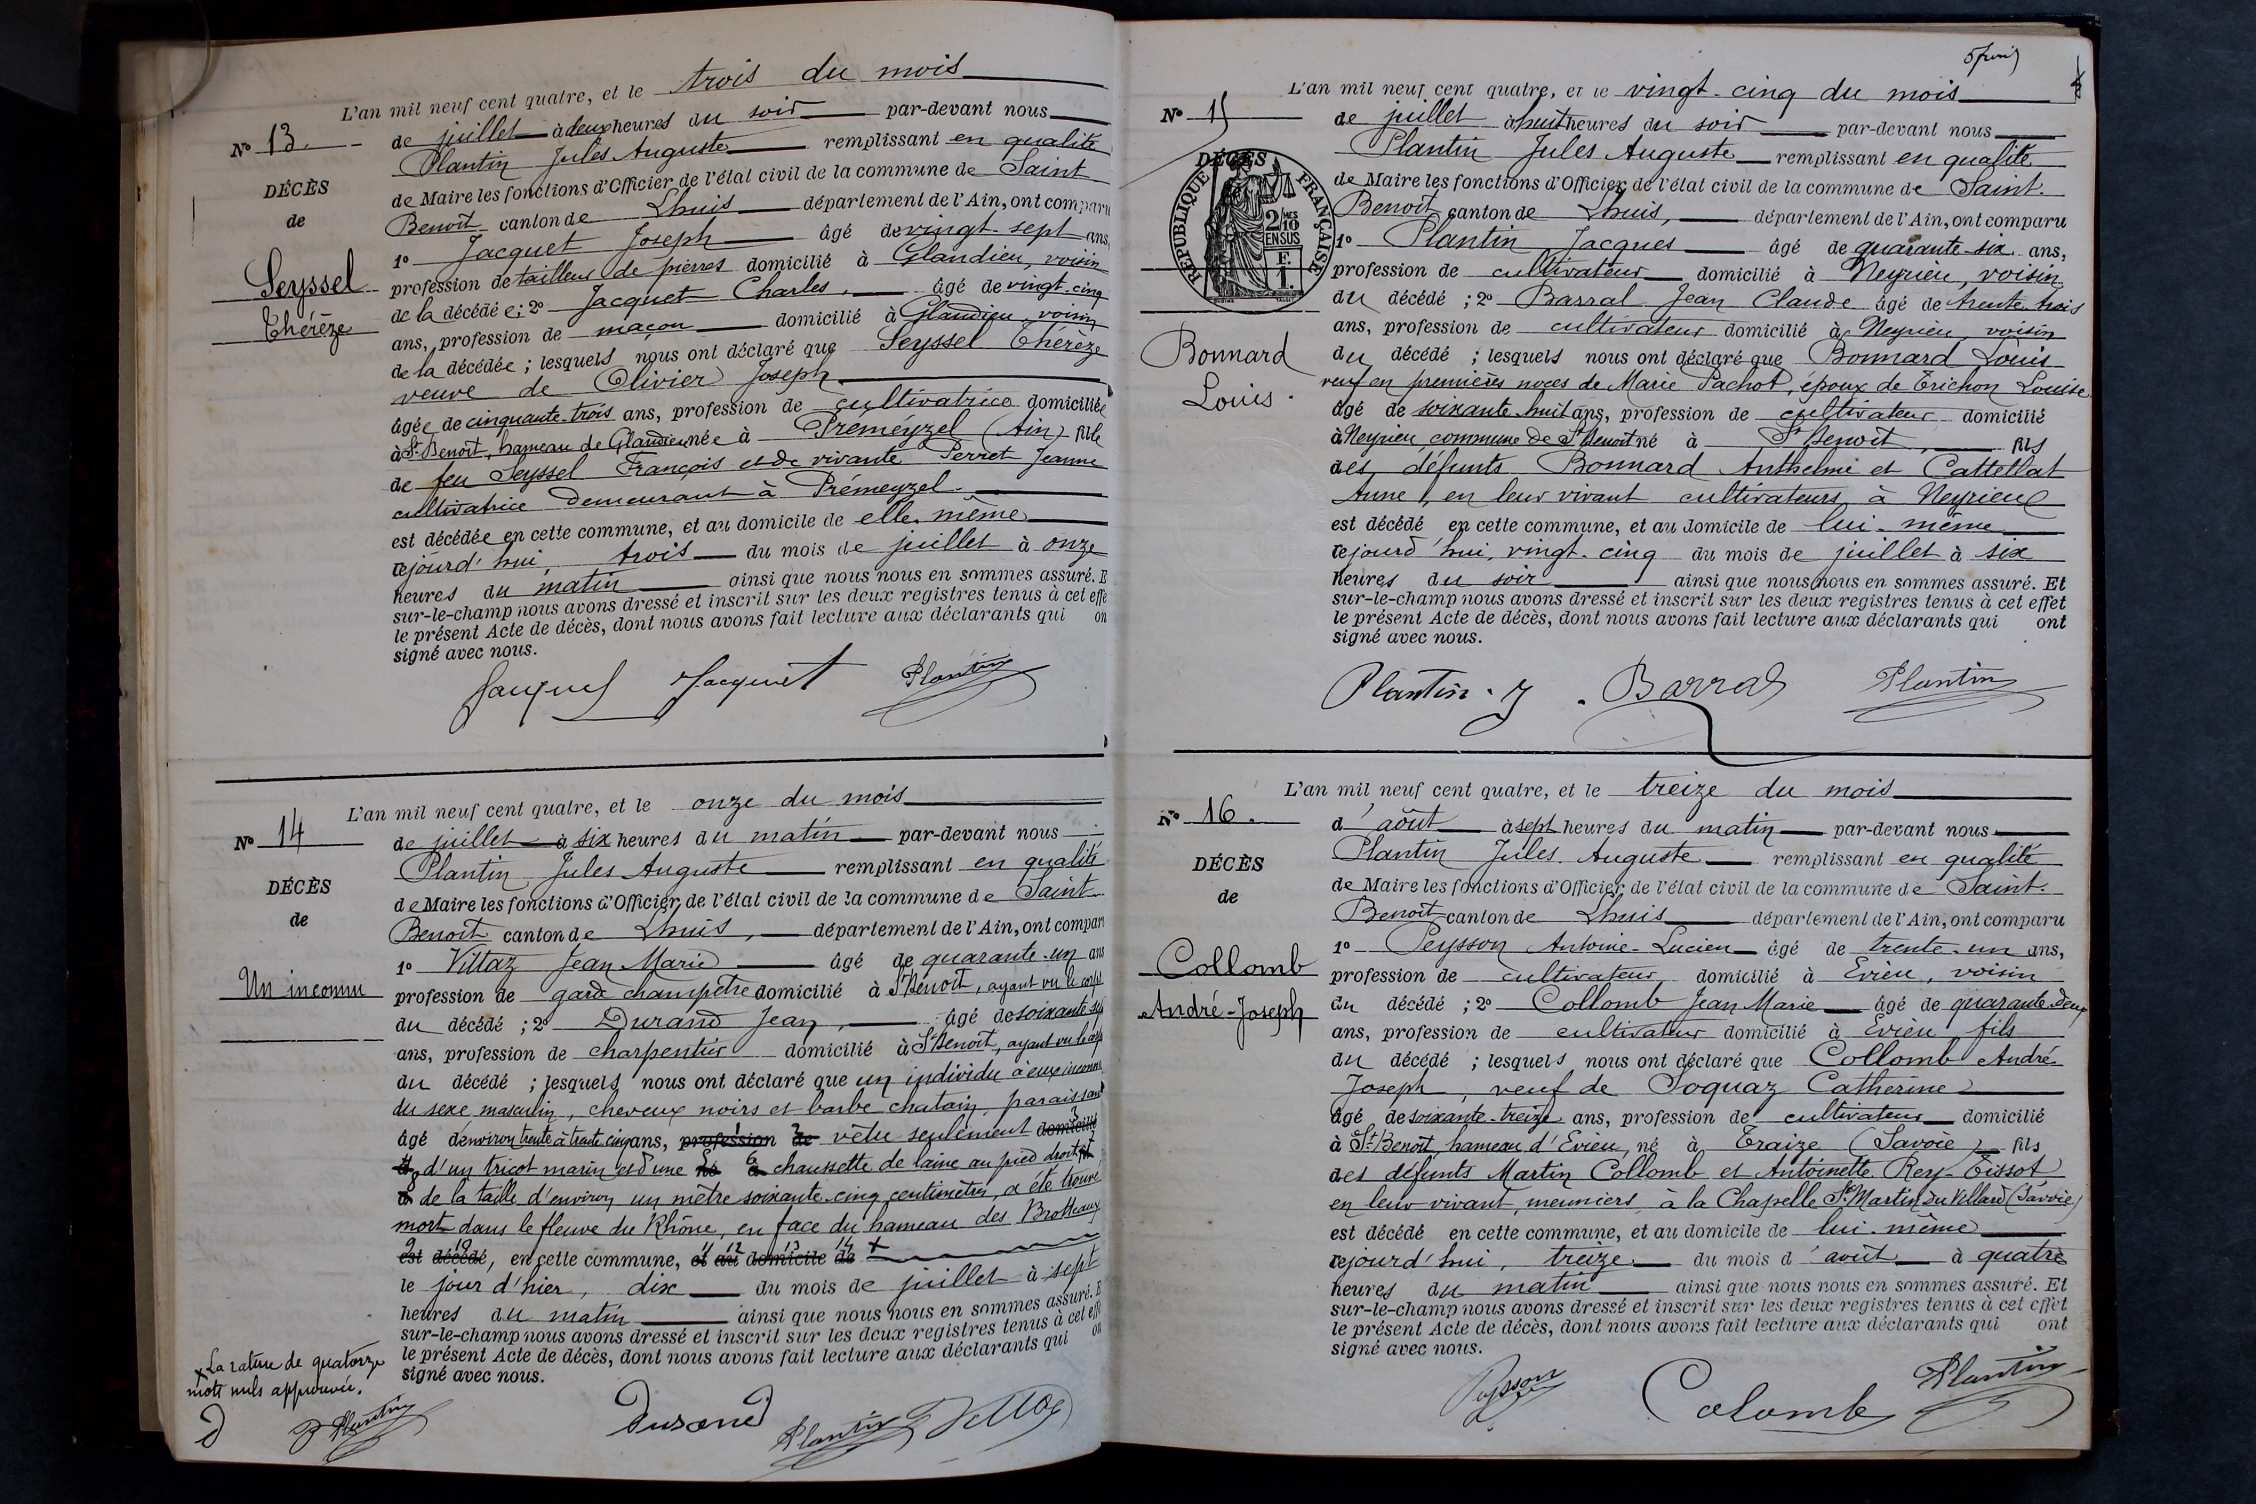 L'an mil neuf cent quatre, et le trois du mois
No 13.
de juillet à deux heures du soir par-devant nous
Plantin Jules Auguste remplissant en qualité
DÉCÈS
de
de Maire les fonctions d'Officier de l'état civil de la commune de Saint
Benoît canton de Lhuis département de l'Ain, ont comparu
1o Jacquet Joseph âgé de vingt-sept ans,
Seyssel
Thérèze
profession de tailleur de pierres domicilié à Glandieu, voisin
de la décédée; 2o Jacquet Charles, âgé de vingt-cinq
ans, profession de maçon domicilié à Glandieu, voisin
de la décédée; lesquels nous ont déclaré que Seyssel Thérèze
veuve de Olivier Joseph
âgée de cinquante-trois ans, profession de cultivatrice domiciliée
à St Benoît, hameau de Glandieu née à Prémeyzel (Ain) fille
de feu Seyssel François et de vivante Perret Jeanne
cultivatrice demeurant à Prémeyzel.
est décédée en cette commune, et au domicile de elle-même
cejourd'hui, trois du mois de juillet à onze
heures du matin ainsi que nous nous en sommes assuré. E
sur-le-champ nous avons dressé et inscrit sur les deux registres tenus à cet effe
le présent Acte de décès, dont nous avons fait lecture aux déclarants qui on
signé avec nous.
Jacquet Jacquet Plantin
L'an mil neuf cent quatre, et le onze du mois
No 14
de juillet à six heures du matin par-devant nous
Plantin Jules Auguste remplissant en qualité
DÉCÈS
de
de Maire les fonctions d'Officier de l'état civil de la commune de Saint
Benoît canton de Lhuis, département de l'Ain, ont comparu
1o Vittaz Jean Marie âgé de quarante-un ans
Un inconnu
profession de garde champêtre domicilié à St Benoît, ayant vu le corps
du décédé; 2o Durand Jean, âgé de soixante
ans, profession de charpentier domicilié à St Benoît, ayant vu le corps
du décédé; lesquels nous ont déclaré que un individu à eux inconnu
du sexe masculin, cheveux noirs et barbe chatain, paraissant
âgé d'environ trente à trente cinq ans, profession de vêtu seulement domicilié
d'un tricot marin et d'une né à chaussette de laine au pied droit
de la taille d'environ un mètre soixante-cinq centimètres, a été trouvé
mort dans le fleuve du Rhône, en face du hameau des Brotteaux
est décédé, en cette commune, et au domicile de +
le jour d'hier, dix du mois de juillet à sept
heures du matin ainsi que nous nous en sommes assuré. E
sur-le-champ nous avons dressé et inscrit sur les deux registres tenus à cet effe
le présent Acte de décès, dont nous avons fait lecture aux déclarants qui on
signé avec nous.
+ La rature de quatorze
mots nuls approuvée.
D Plantin
Durand Plantin Vittaz
L'an mil neuf cent quatre, et le vingt-cinq du mois
No 15
de juillet à huit heures du soir par-devant nous
Plantin Jules Auguste remplissant en qualité
DÉCÈS
RÉPUBLIQUE FRANÇAISE
2/10 MES
EN SUS
F.
1.
de Maire les fonctions d'Officier de l'état civil de la commune de Saint-
Benoît canton de Lhuis, département de l'Ain, ont comparu
1o Plantin Jacques âgé de quarante-six ans,
profession de cultivateur domicilié à Neyrieu, voisin
du décédé; 2o Barral Jean Claude âgé de trente-trois
ans, profession de cultivateur domicilié à Neyrieu, voisin
Bonnard
Louis.
du décédé; lesquels nous ont déclaré que Bonnard Louis
veuf en premières noces de Marie Pachot, époux de Trichon Louise
âgé de soixante-huit ans, profession de cultivateur domicilié
à Neyrieu, commune de St Benoît né à St Benoît, fils
des défunts Bonnard Anthelme et Cattellat
Anne, en leur vivant cultivateurs à Neyrieu
est décédé en cette commune, et au domicile de lui-même
cejourd'hui, vingt-cinq du mois de juillet à six
heures du soir ainsi que nous nous en sommes assuré. Et
sur-le-champ nous avons dressé et inscrit sur les deux registres tenus à cet effet
le présent Acte de décès, dont nous avons fait lecture aux déclarants qui ont
signé avec nous.
Plantin. J. Barral Plantin
L'an mil neuf cent quatre, et le treize du mois
No 16.
d'août à sept heures du matin par-devant nous
Plantin Jules Auguste remplissant en qualité
DÉCÈS
de
de Maire les fonctions d'Officier de l'état civil de la commune de Saint-
Benoît canton de Lhuis département de l'Ain, ont comparu
1o Peysson Antoine-Lucien âgé de trente-un ans,
Collomb
André-Joseph
profession de cultivateur domicilié à Evieu, voisin
du décédé; 2o Collomb Jean Marie âgé de quarante-deux
ans, profession de cultivateur domicilié à Evieu fils
du décédé; lesquels nous ont déclaré que Collomb André
Joseph, veuf de Soquaz Catherine
âgé de soixante-treize ans, profession de cultivateur domicilié
à St Benoît, hameau d'Evieu, né à Traize (Savoie) fils
des défunts Martin Collomb et Antoinette Rey-Tissot
en leur vivant, meuniers à la Chapelle St Martin du Villard (Savoie)
est décédé en cette commune, et au domicile de lui-même
cejourd'hui, treize du mois d'août à quatre
heures du matin ainsi que nous nous en sommes assuré. Et
sur-le-champ nous avons dressé et inscrit sur les deux registres tenus à cet effet
le présent Acte de décès, dont nous avons fait lecture aux déclarants qui ont
signé avec nous.
Peysson Colomb Plantin